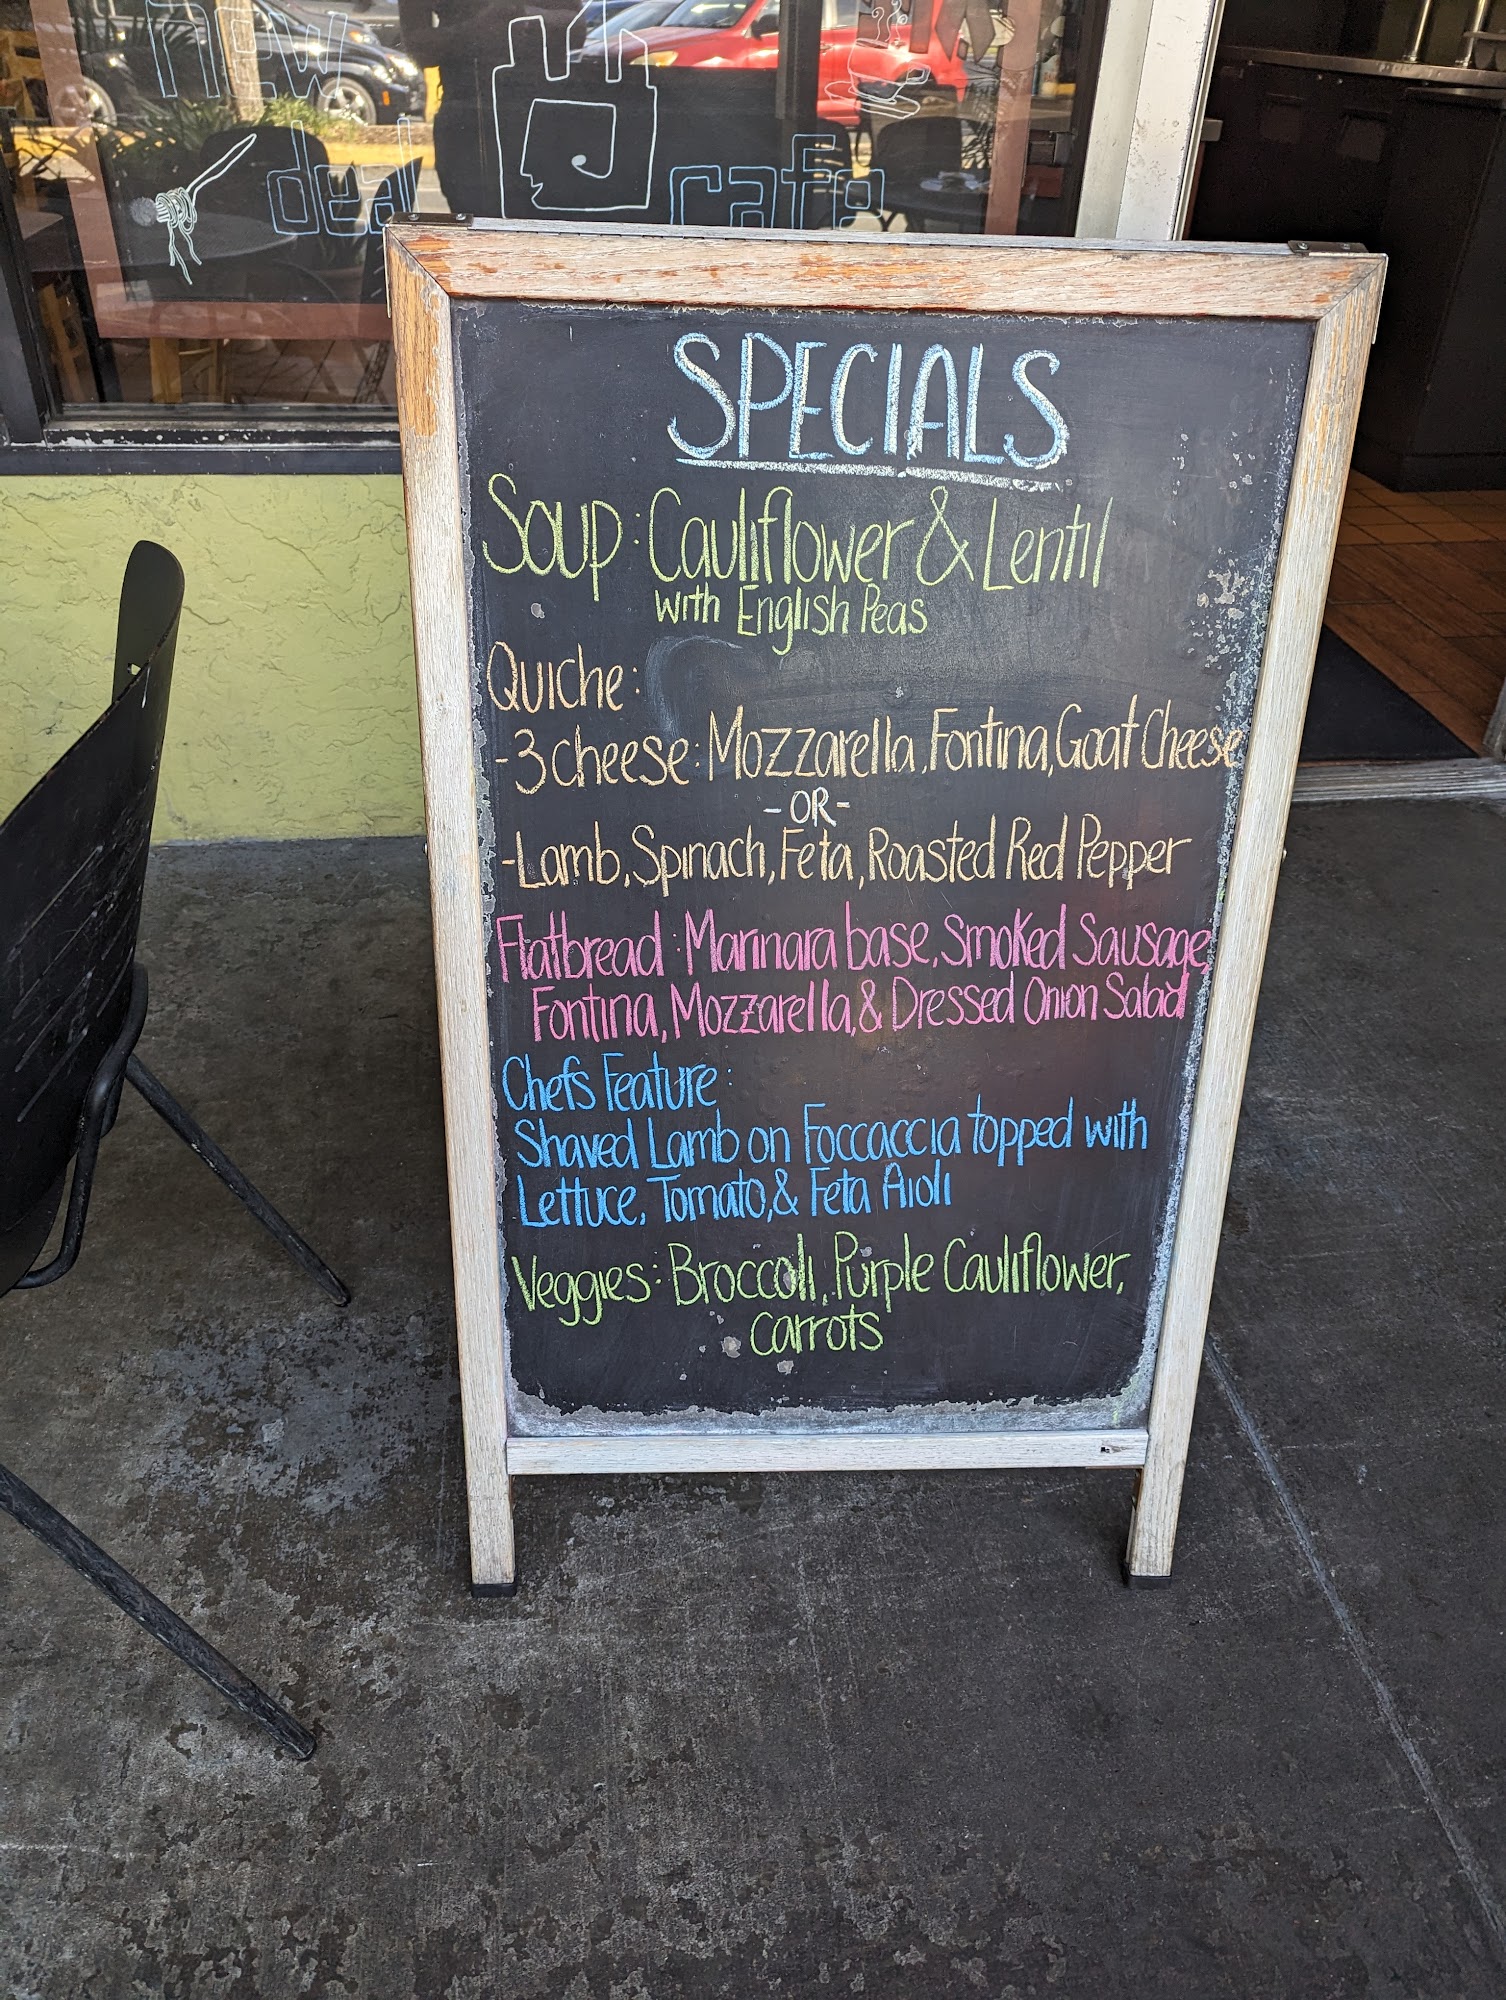 new
deal cafe
SPECIALS
Soup: Cauliflower & Lentil
with English Peas
Quiche:
-3 cheese: Mozzarella, Fontina, Goat Cheese
-OR-
-Lamb, Spinach, Feta, Roasted Red Pepper
Flatbread: Marinara base, Smoked Sausage,
Fontina, Mozzarella, & Dressed Onion Salad
Chefs Feature:
Shaved Lamb on Foccaccia topped with
Lettuce, Tomato, & Feta Aioli
Veggies: Broccoli, Purple Cauliflower,
Carrots